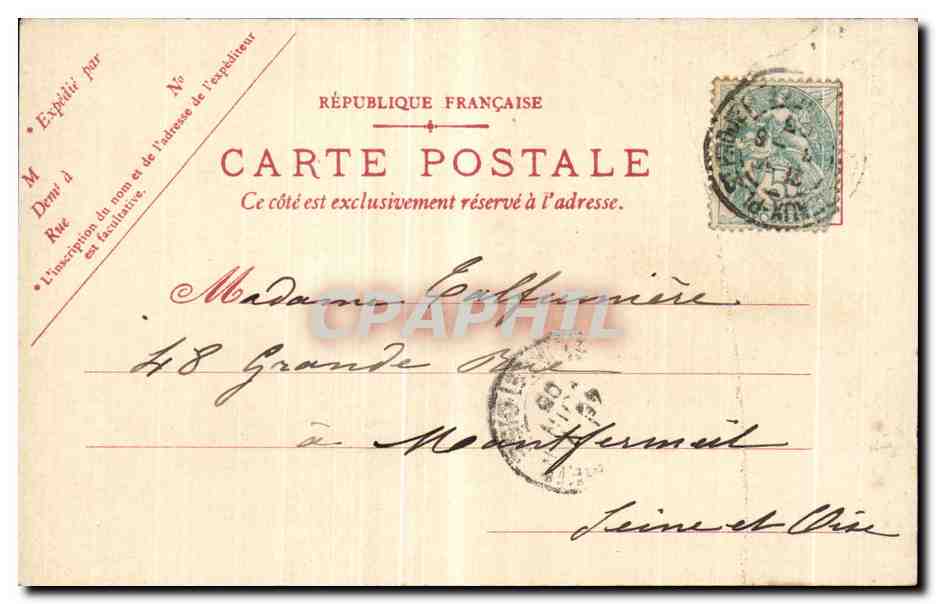 * Expédié par
M
Demt à
Rue
No
* L'inscription du nom et de l'adresse de l'expéditeur
est facultative.
RÉPUBLIQUE FRANÇAISE
CARTE POSTALE
Ce côté est exclusivement réservé à l'adresse.
Madame
48 Grande Rue
à Montfermeil
Seine et Oise
CPAPHIL